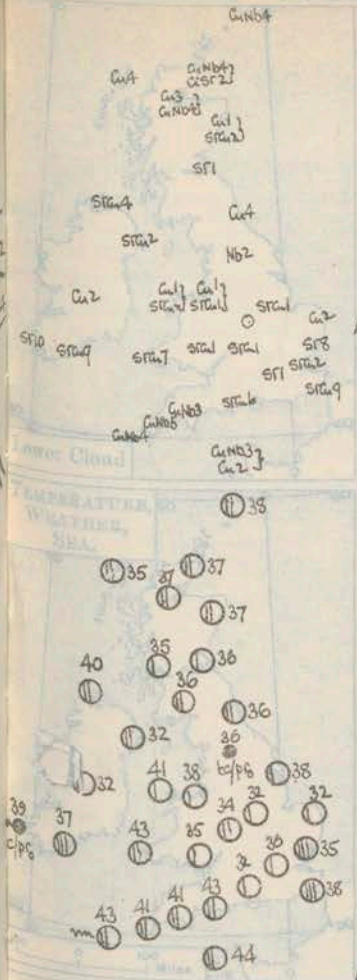 CuNb4
Cu4
CuNb4
CuSr2
Cu3
CuNb4
Cu1
StCu2
St1
StCu4
Cu4
StCu2
Nb2
Cu2
Cu1
Cu1
StCu1
StCu1
Cu2
St10
StCu9
StCu7
StCu1
StCu1
St8
St1
StCu2
StCu9
StCu6
CuNb3
CuNb5
CuNb4
CuNb3
Cu2
Lower Cloud
TEMPERATURE,
WEATHER,
SEA.
38
35
37
37
37
40
35
38
36
36
32
36
bc/pg
32
41
38
38
39
c/pg
37
43
35
34
32
32
36
35
32
38
43
41
41
43
m
44
Miles
100